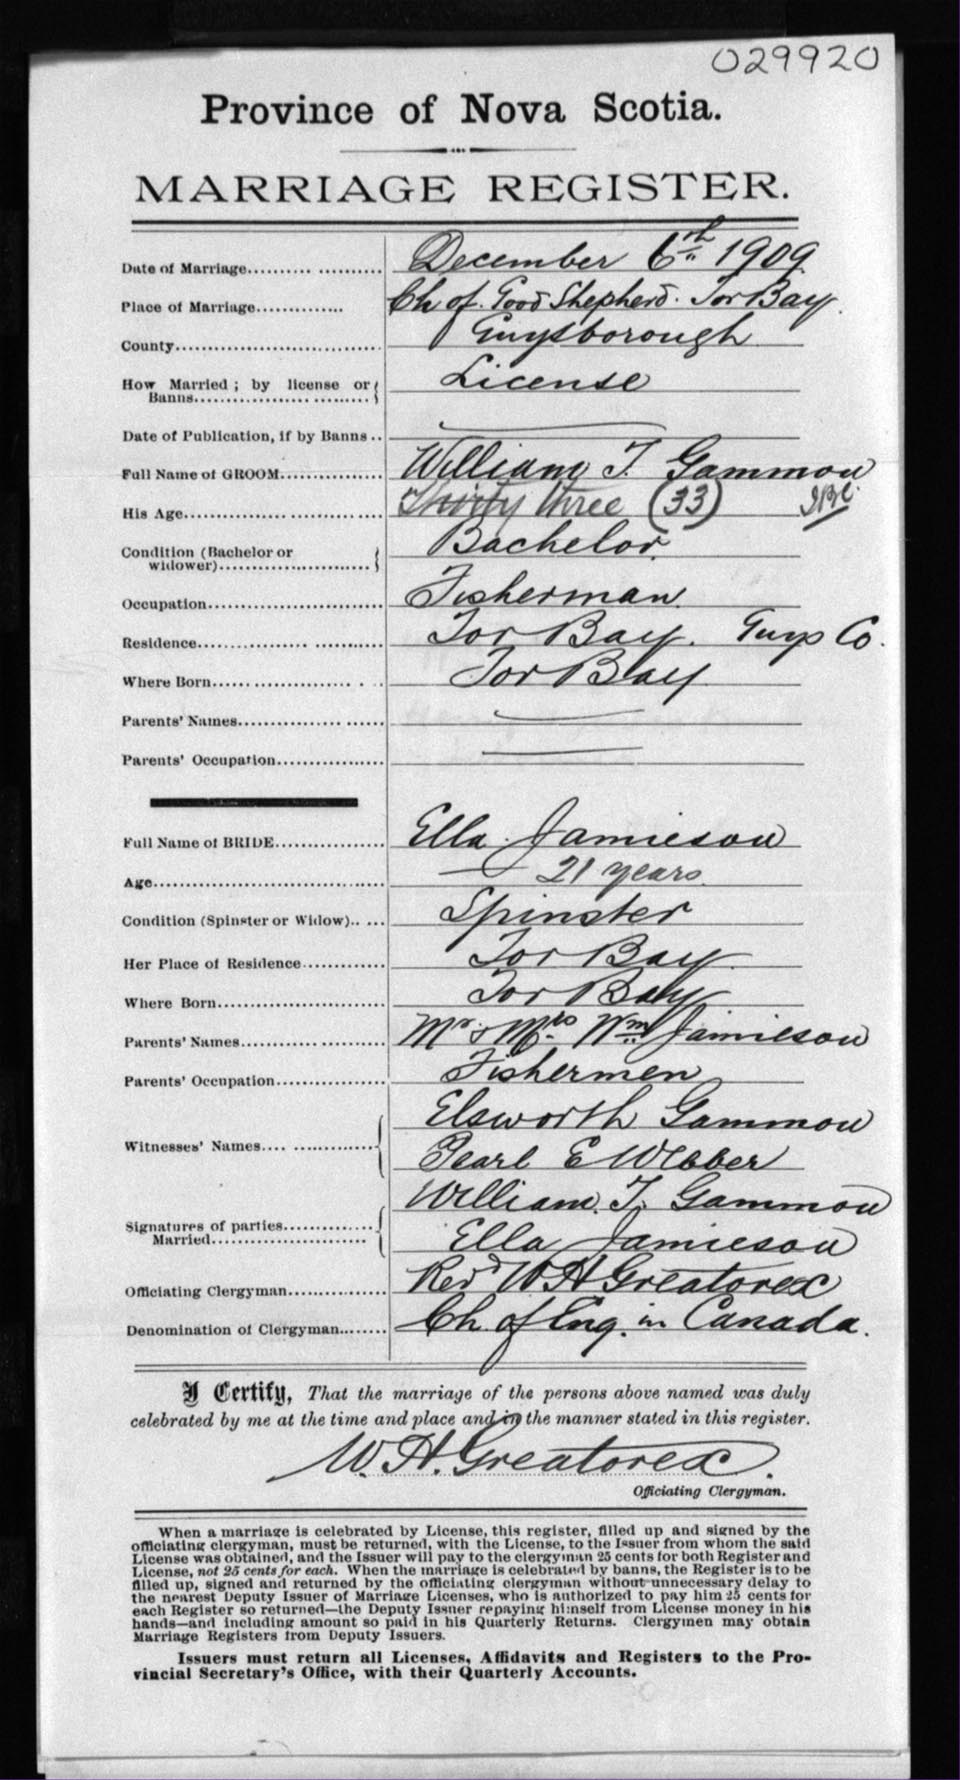 029920
Province of Nova Scotia.
MARRIAGE REGISTER.
Date of Marriage.................... December 6th 1909
Place of Marriage.............. Ch of. Good Shepherd. Tor Bay.
County............................... Guysborough
How Married ; by license or License
Banns..............................
Date of Publication, if by Banns ..
Full Name of GROOM............... William T. Gammon
His Age............................. Thirty three (33)
Condition (Bachelor or Bachelor.
widower)..........................
Occupation.......................... Fisherman.
Residence........................... Tor Bay. Guys Co.
Where Born........................ Tor Bay
Parents' Names.....................
Parents' Occupation................
Full Name of BRIDE................ Ella Jamieson
Age................................... 21 years.
Condition (Spinster or Widow)..... Spinster
Her Place of Residence............. Tor Bay.
Where Born......................... Tor Bay
Parents' Names..................... Mr & Mrs Wm Jamieson
Parents' Occupation................ Fishermen
Elsworth Gammon
Witnesses' Names..................
Pearl E Webber
William. T. Gammon
Signatures of parties..............
Married........................ Ella Jamieson
Officiating Clergyman.............. Revd W H Greatorex
Denomination of Clergyman........ Ch. of Eng. in Canada.
I Certify, That the marriage of the persons above named was duly
celebrated by me at the time and place and in the manner stated in this register.
W. H. Greatorex.
Officiating Clergyman.
When a marriage is celebrated by License, this register, filled up and signed by the
officiating clergyman, must be returned, with the License, to the Issuer from whom the said
License was obtained, and the Issuer will pay to the clergyman 25 cents for both Register and
License, not 25 cents for each. When the marriage is celebrated by banns, the Register is to be
filled up, signed and returned by the officiating clergyman without unnecessary delay to
the nearest Deputy Issuer of Marriage Licenses, who is authorized to pay him 25 cents for
each Register so returned—the Deputy Issuer repaying himself from License money in his
hands—and including amount so paid in his Quarterly Returns. Clergymen may obtain
Marriage Registers from Deputy Issuers.
Issuers must return all Licenses, Affidavits and Registers to the Pro-
vincial Secretary's Office, with their Quarterly Accounts.